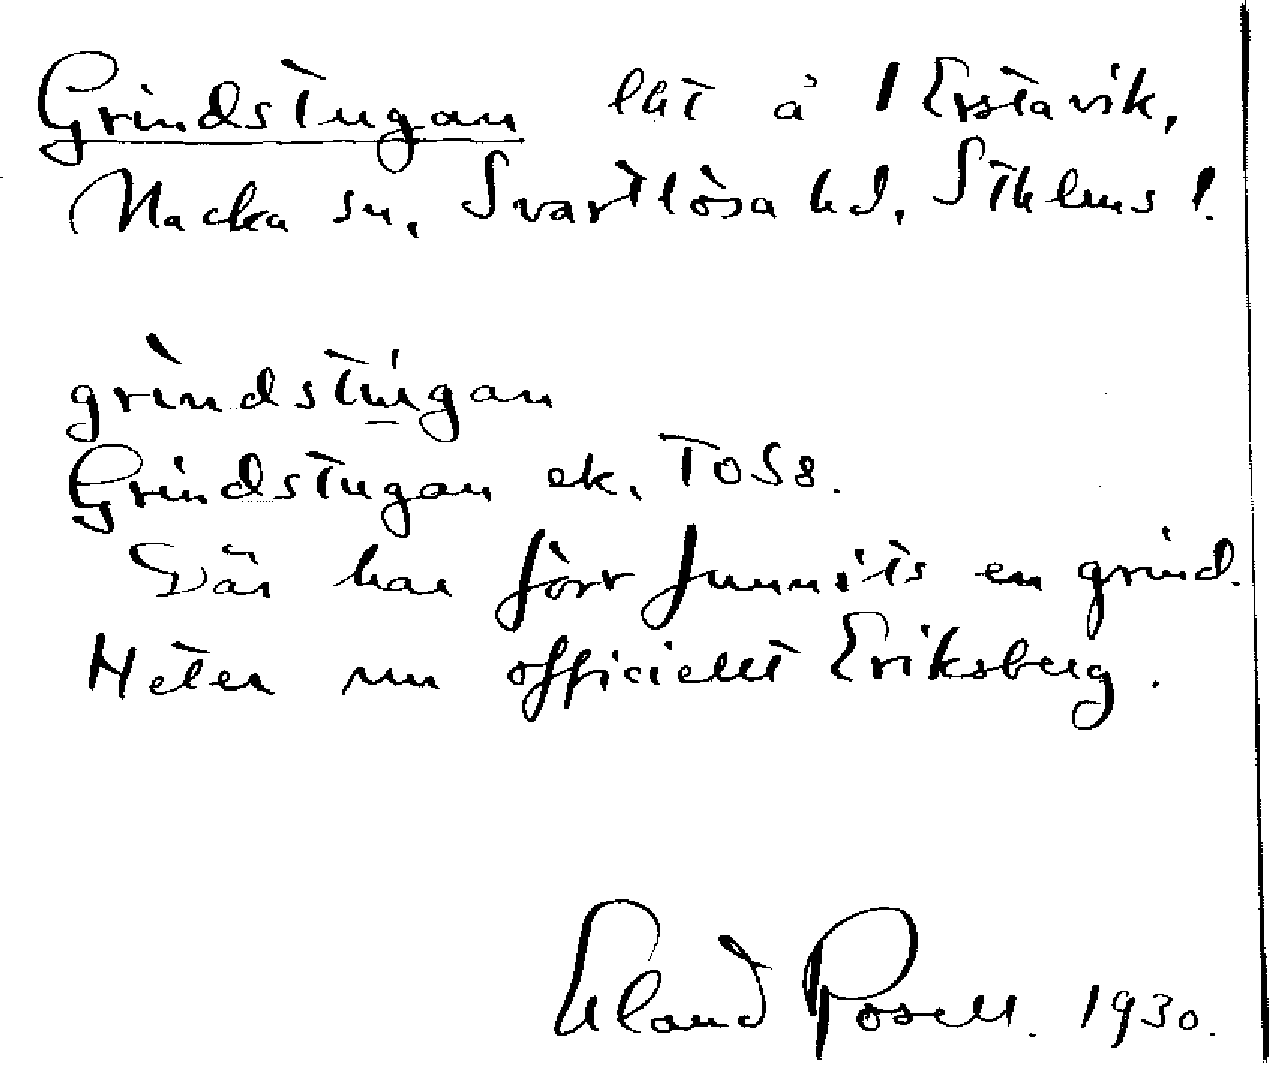 Grindstugan lht å 1 Erstavik,
Nacka sn, Svartlösa hd, Sthlms l.
grindstugan
Grindstugan ek. To S8.
Där har förr funnits en grind.
Heter nu officiellt Eriksberg.
Erland Rosell. 1930.